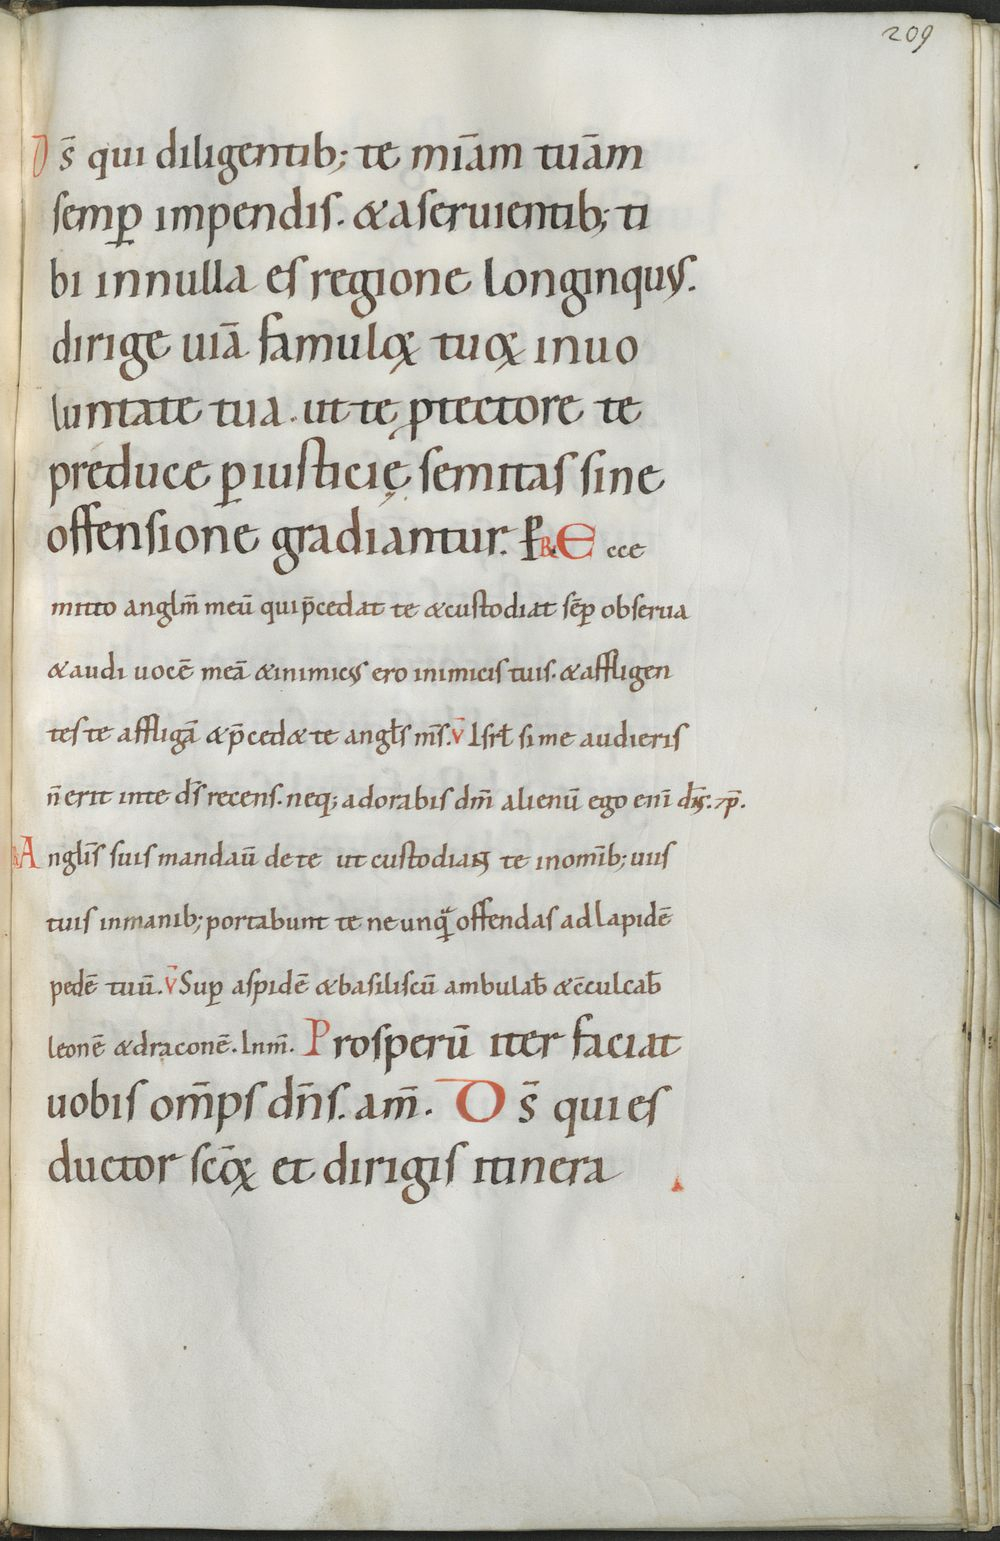 209
Ds̄ qui diligentib; te mīam tuām
semꝑ impendis. & a seruientib; ti
bi in nulla es regione longinquꝰ.
dirige uiā famuloꝝ tuoꝝ in uo
luntate tua. ut te ꝓtectore te
preduce ꝑ iusticię semitas sine
offensione gradiantur. ꝑ R. Ecce
mitto anglm̄ meū qui p̄cedat te & custodiat sēꝑ obserua
& audi uocē meā & inimicꝰ ero inimicis tuis. & affligen
tes te affligā & p̄ced& te angl̄s m̄s. v̄ Isrl̄ si me audieris
n̄ erit in te ds̄ recens. neq; adorabis dm̄ alienū ego enī dn̄s. ⁊ p̄.
R. Angl̄is suis mandaū de te ut custodian̄t te in omīb; uiis
tuis in manib; portabunt te ne unqᷓ offendas ad lapidē
pedē tuū. v̄ Suꝑ aspidē & basiliscū ambulab̄ & c̄culcab̄
leonē & draconē. In m̄. Prosperū iter faciat
uobis om̄ps dn̄s. am̄. Ds̄ qui es
ductor sc̄oꝝ et dirigis itinera